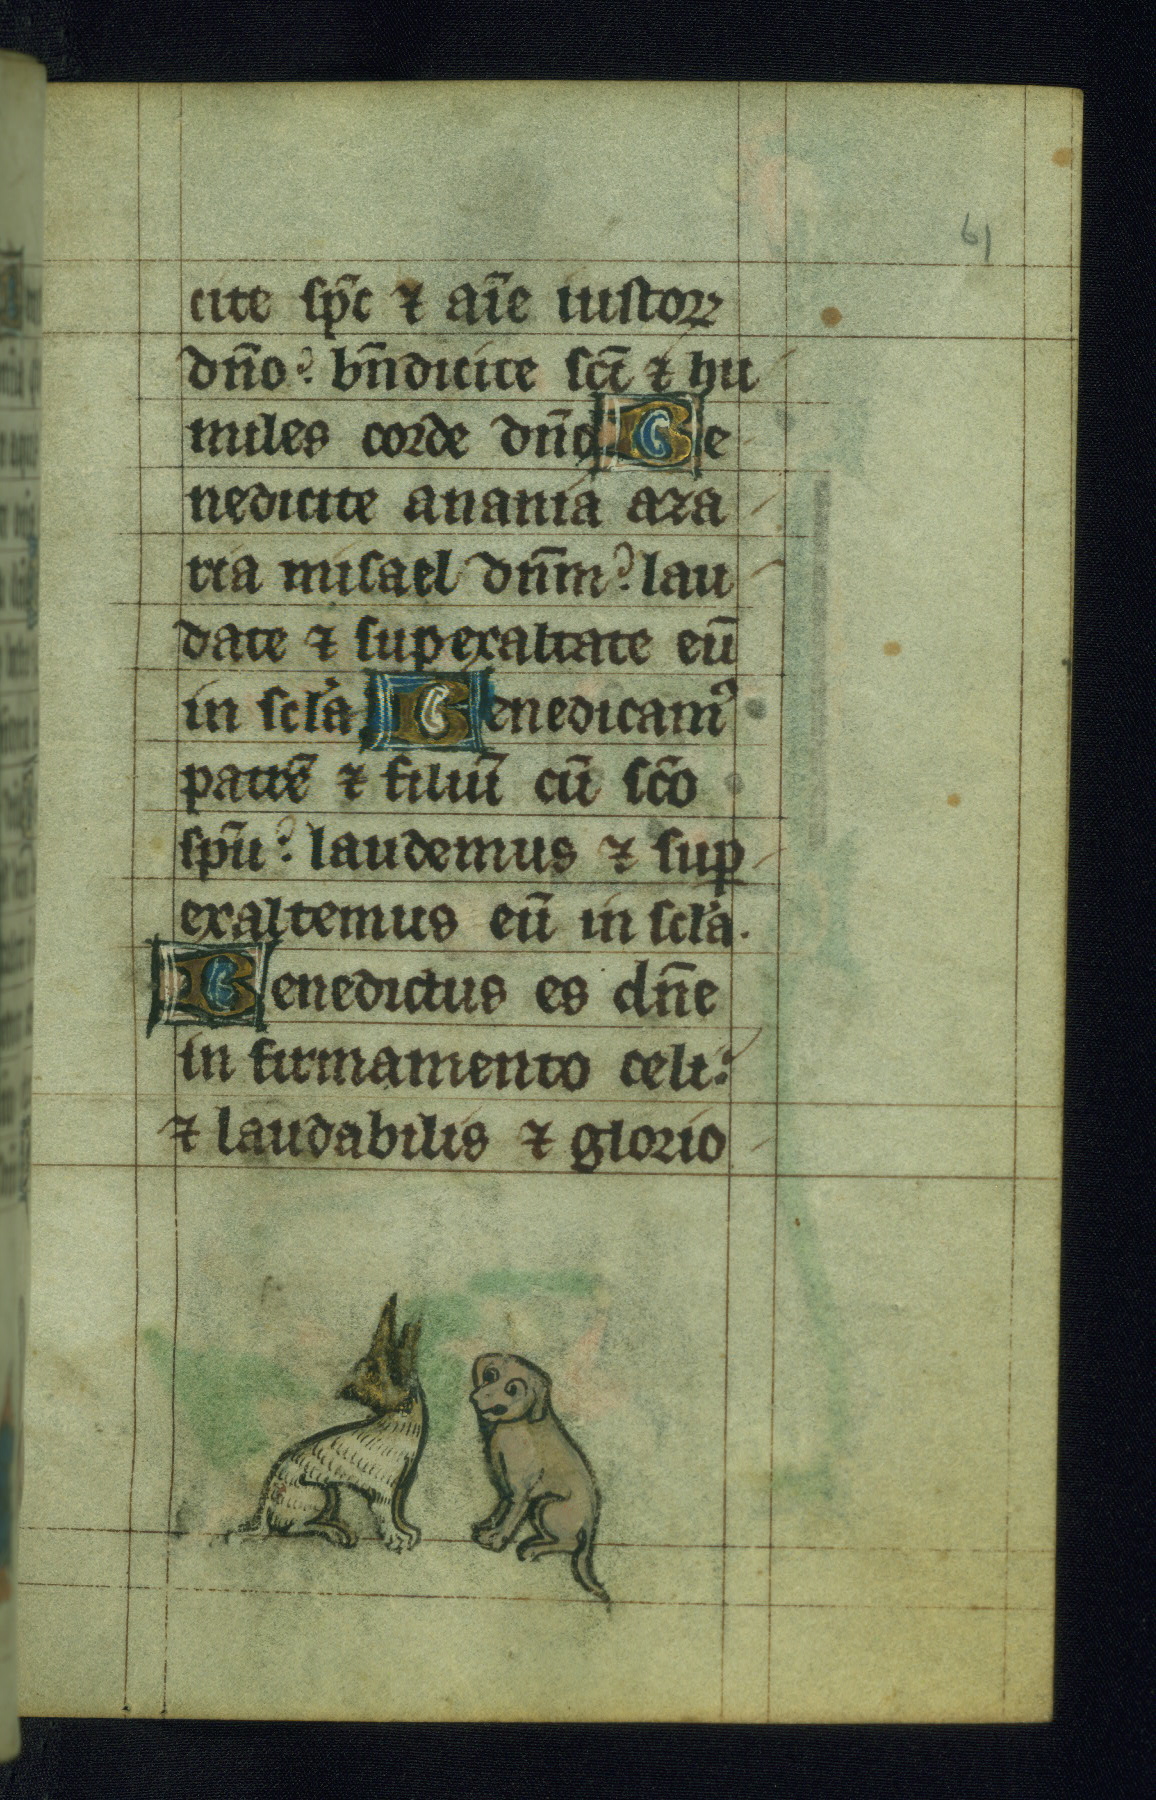 61
cite sp̄c ⁊ aīe iustoꝝ
dn̄o? bn̄dicite sc̄i ⁊ hu
miles corde dn̄o Be
nedicite anania aza
ria misael dn̄m? lau
date ⁊ supexaltate eū
in scl̄a Benedicamꝰ
patrē ⁊ filiū cū sc̄o
sp̄u? laudemus ⁊ suꝑ
exaltemus eū in scl̄a.
Benedictus es dn̄e
in firmamento celi:
⁊ laudabilis ⁊ glorio